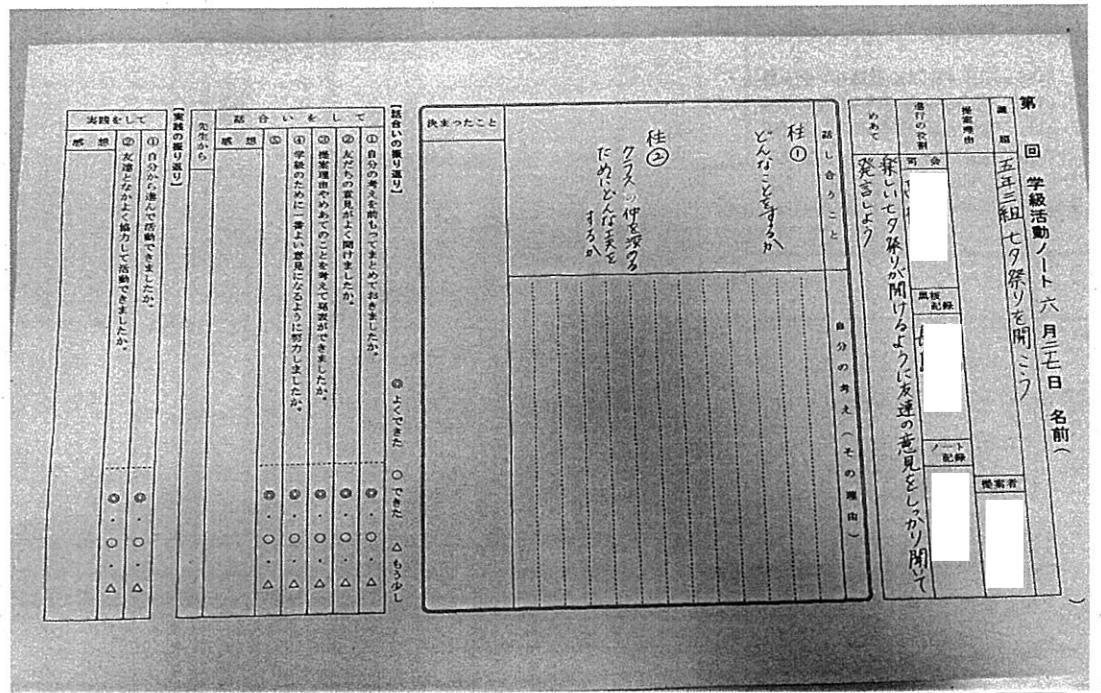 第　回　学級活動ノート　六月二七日　名前（　）
議題　五年三組 七夕祭りを開こう
提案理由
提案者
進行の役割　司会　黒板記録　ノート記録
めあて　楽しい七夕祭りが開けるように友達の意見をしっかり聞いて
発言しよう
話し合うこと　自分の考え（その理由）
柱①
どんなことをするか
柱②
クラスの仲を深める
ためにどんな工夫を
するか
決まったこと
【話合いの振り返り】　◎よくできた　○できた　△もう少し
話合いをして
①自分の考えを前もってまとめておきましたか。　◎・○・△
②友だちの意見がよく聞けましたか。　◎・○・△
③提案理由やめあてのことを考えて発表ができましたか。　◎・○・△
④学級のために一番よい意見になるように努力しましたか。　◎・○・△
⑤　◎・○・△
感想
先生から
【実践の振り返り】
実践をして
①自分から進んで活動できましたか。　◎・○・△
②友達となかよく協力して活動できましたか。　◎・○・△
感想